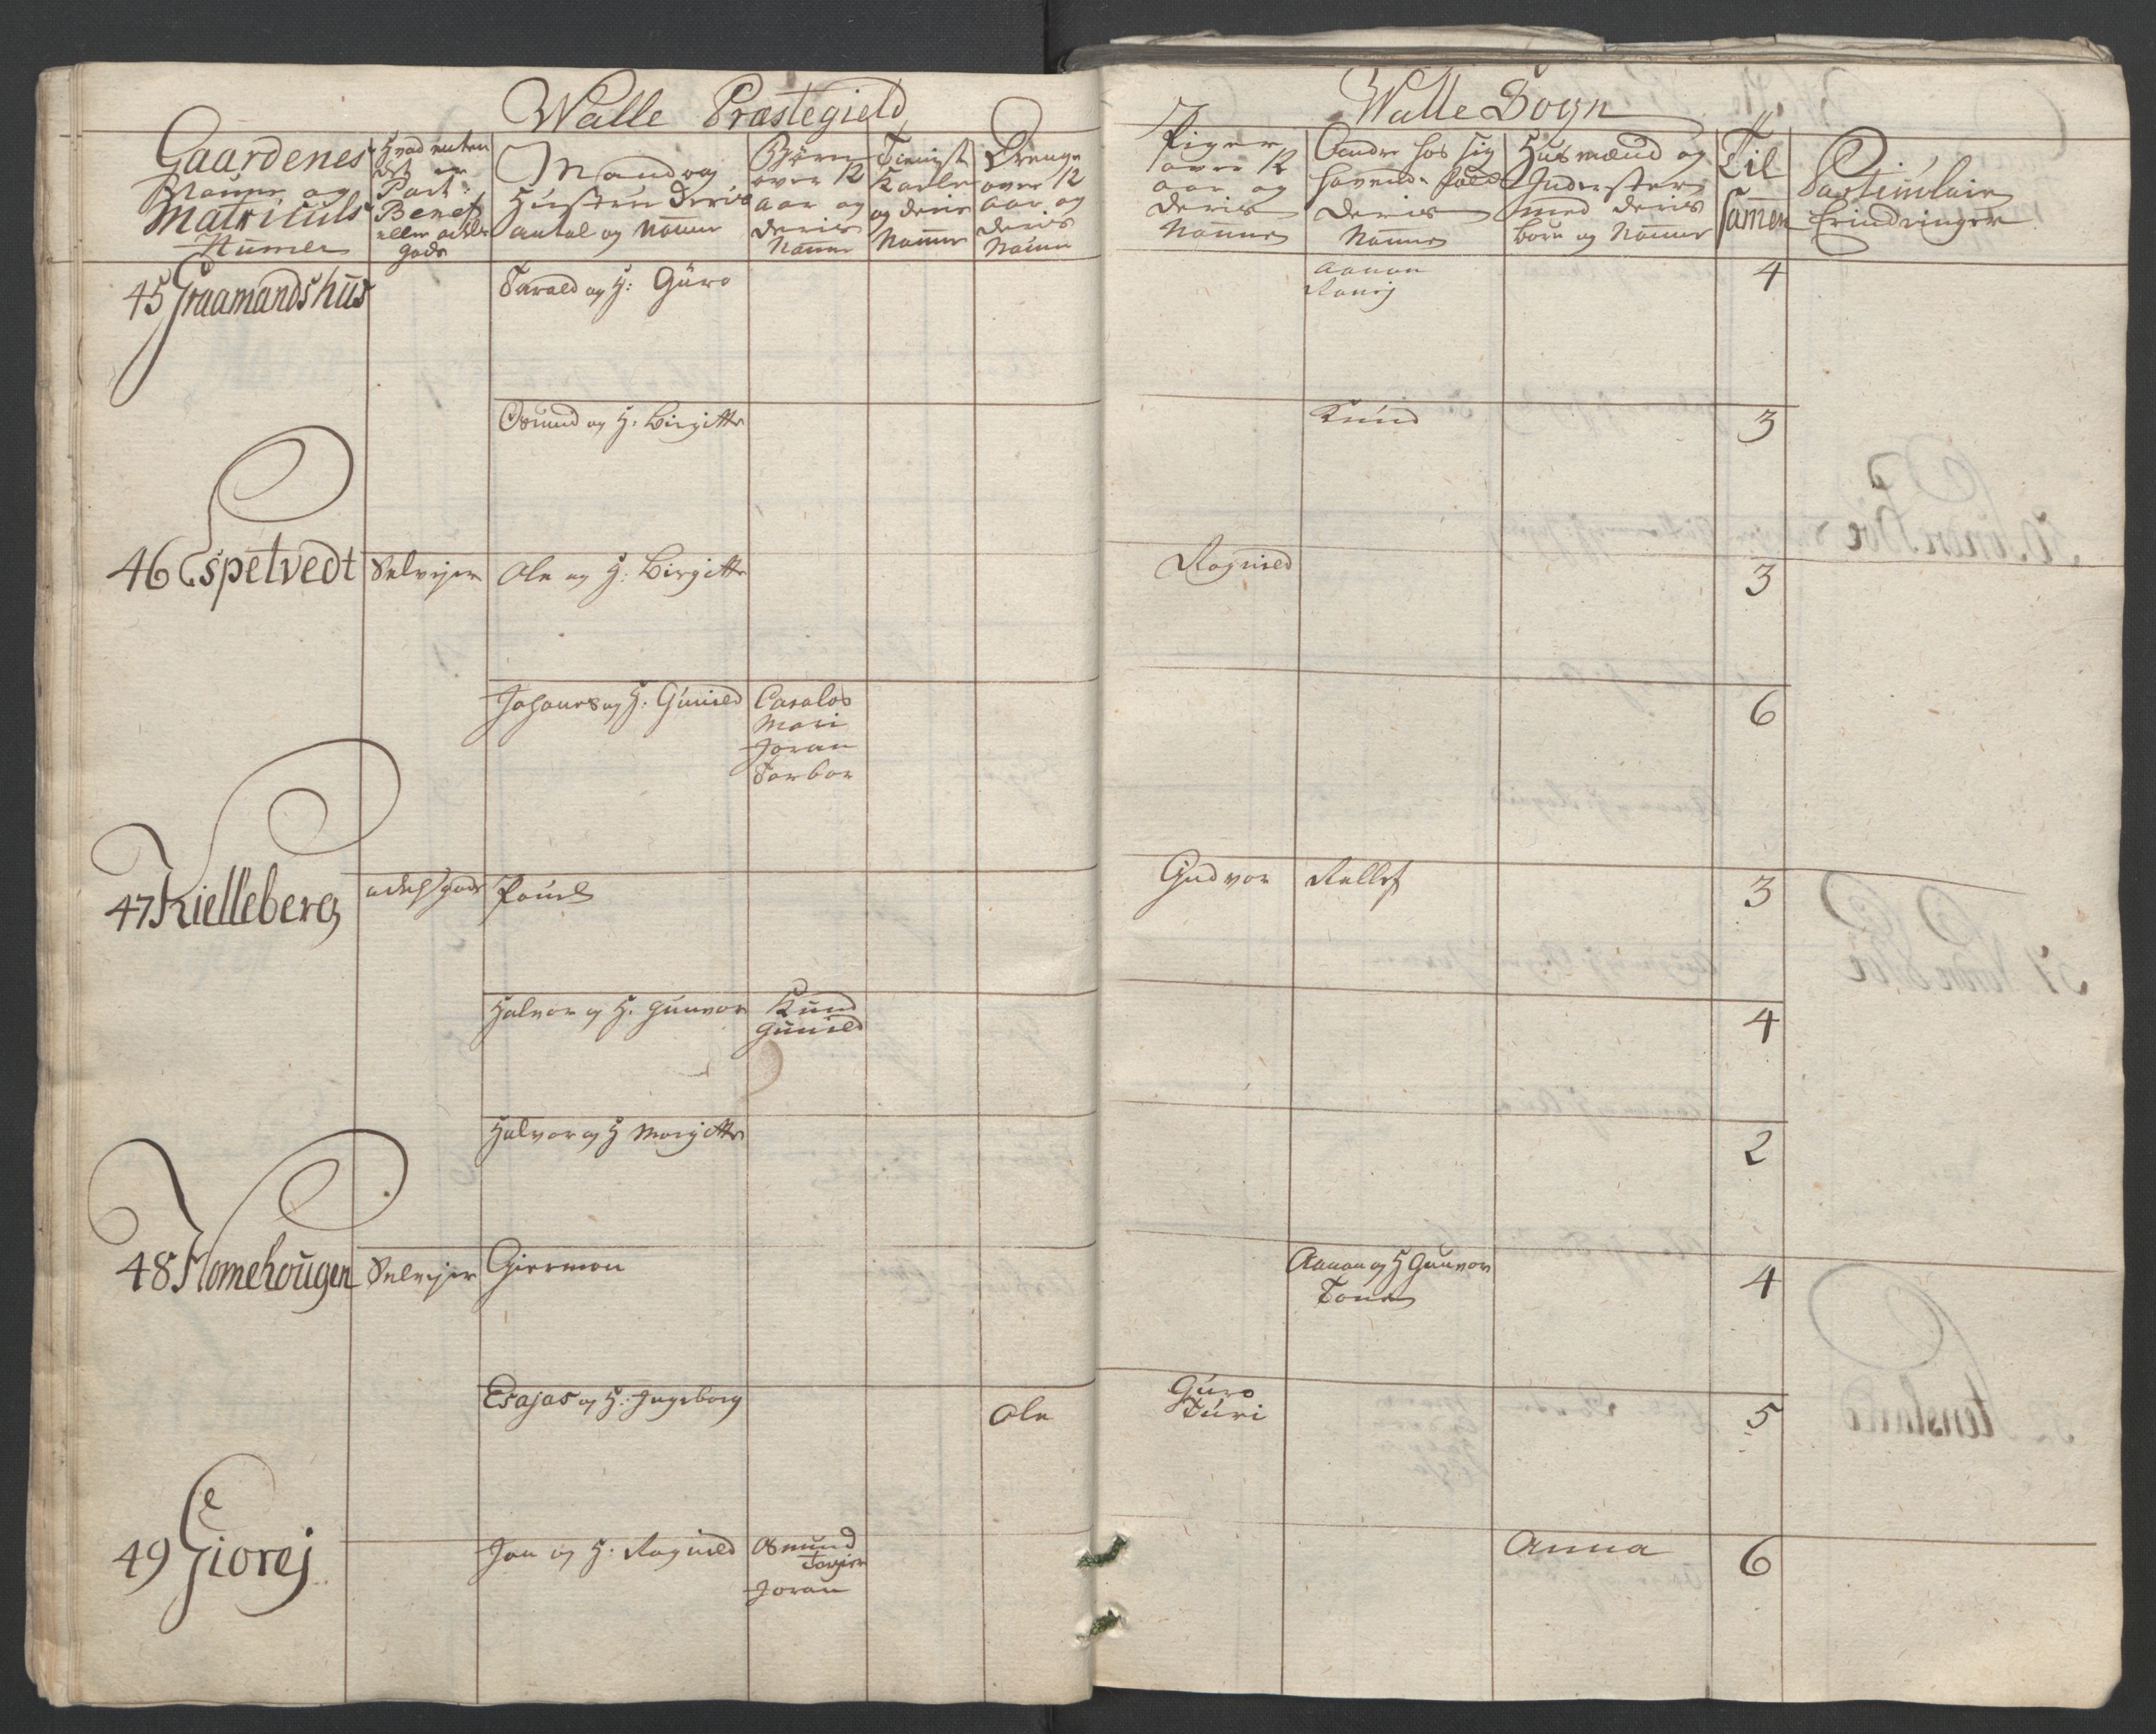 Walle Præstegield
Gaardenes Nafne og Matriculs Numer
Hvad enten det er Part: Benef: eller adels gods
Mand og Hustrue deris antal og Nafne
Børn over 12 aar og deris Nafne
Tienist Karle og deris Nafne
Drenge over 12 aar og deris Nafne
Walle Sogn
Piger over 12 aar og deris Nafne
Andre hos sig havende folk deris Nafne
Husmænd og Inderster med deris børn og Nafne
Til samen
Particulaire Erindringer
45 Graamandshus Tarald og H: Guro Aanon 4
Ranej
Osmund og H. Birgitte Knud 3
46 Espetvedt Selvejer Ole og H: Birgitte Ragnild 3
Johanes og H. Gunild Caralos 6
Mari
Joran
Torbor
47 Kielleberg adelsgods Povel Gudvor Rellef 3
Halvor og H. Gunvor Knud 4
Gunild
Halvor og H Margitte 2
48 Homehougen Selvejer Giermon Aanon og H Gunvor 4
Tone
Esajas og H: Ingeborg Ole Guro 5
Turi
49 Giorej Jon og H. Ragnild Osmund Anna 6
Torgier
Joran